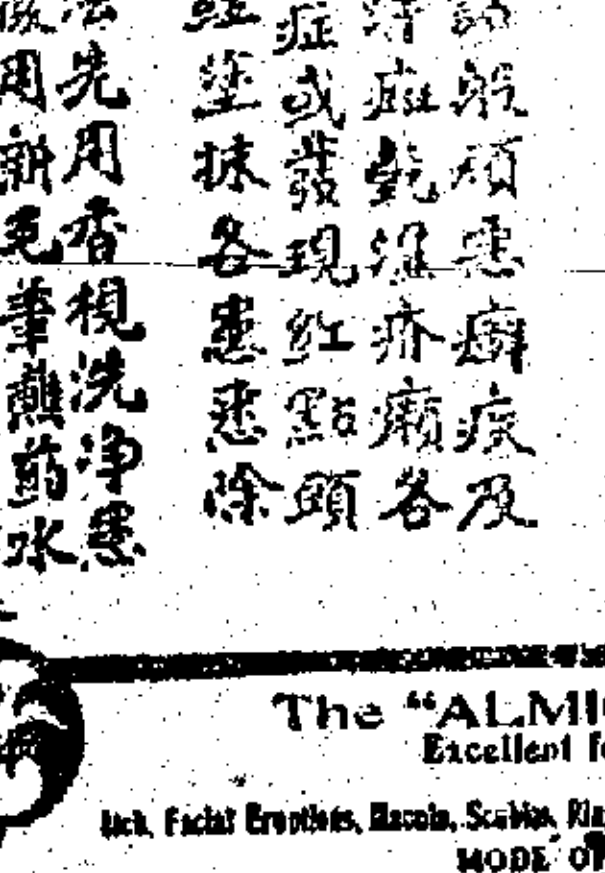 般頑惡癬痰及
痲乾濕疥癩各
症或發現紅點頭
經塗抹各患悉除
先用香梘洗净患
用新毛筆蘸葯水
The "ALMI
Excellent fo
Itch, Facial Eruptions, Scabies, Rin
MODE OF